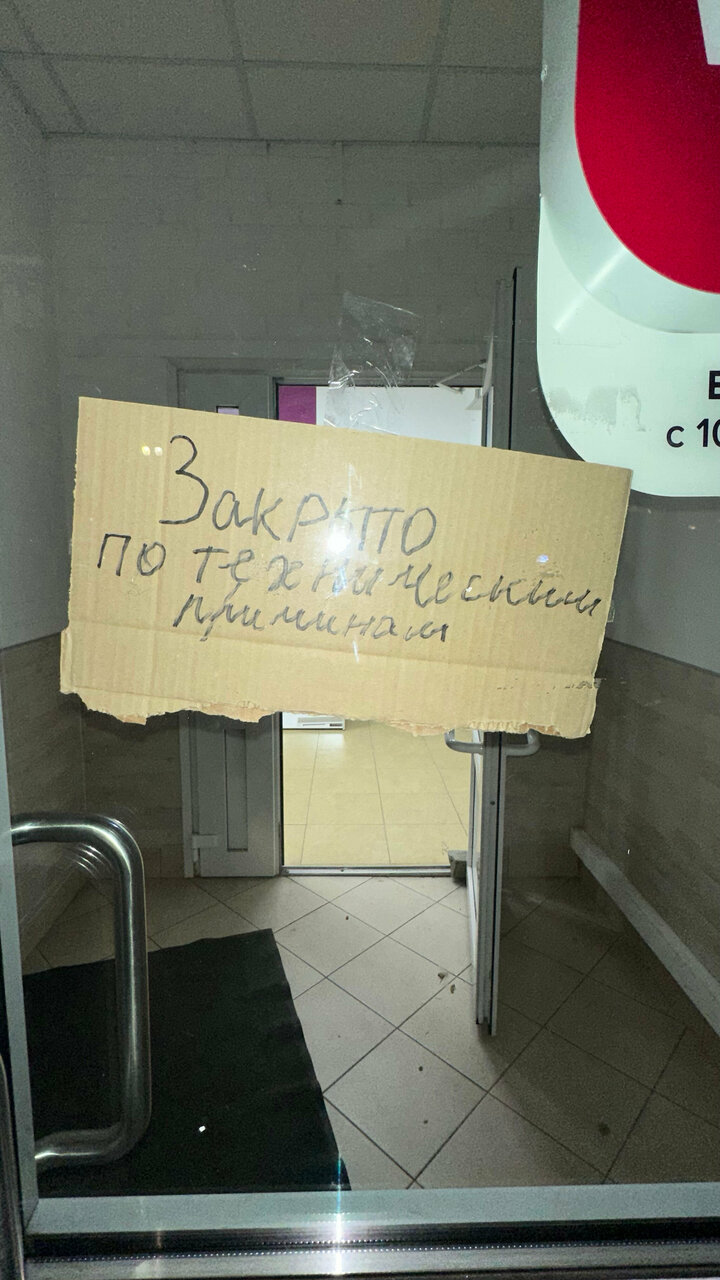 Закрыто
по техническим
причинам
с 10